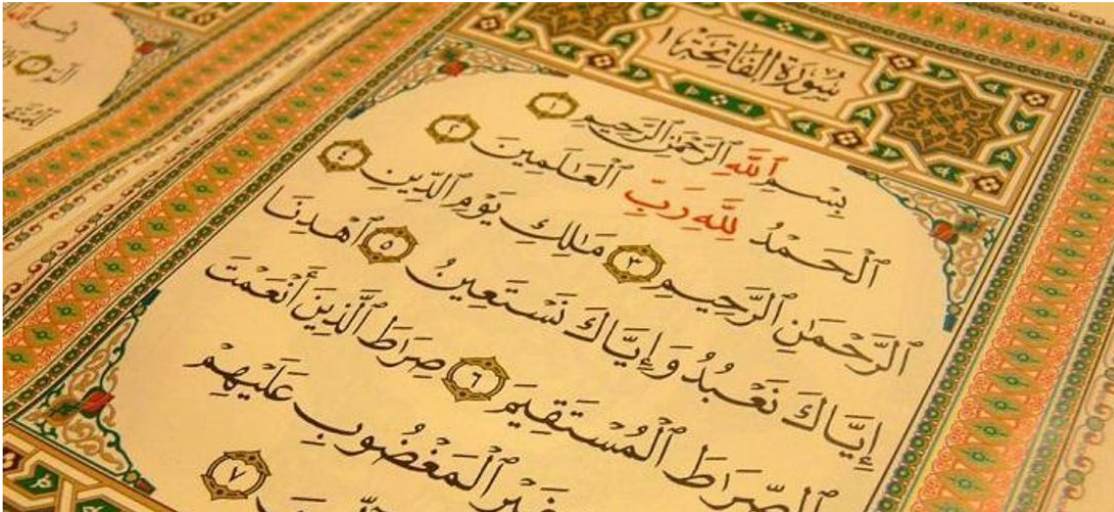 سُورَةُ الفَاتِحَةِ ١
بِسْمِ ٱللَّهِ ٱلرَّحْمَٰنِ ٱلرَّحِيمِ ١
ٱلْحَمْدُ لِلَّهِ رَبِّ ٱلْعَٰلَمِينَ ٢
ٱلرَّحْمَٰنِ ٱلرَّحِيمِ ٣ مَٰلِكِ يَوْمِ ٱلدِّينِ ٤
إِيَّاكَ نَعْبُدُ وَإِيَّاكَ نَسْتَعِينُ ٥ ٱهْدِنَا
ٱلصِّرَٰطَ ٱلْمُسْتَقِيمَ ٦ صِرَٰطَ ٱلَّذِينَ أَنْعَمْتَ
غَيْرِ ٱلْمَغْضُوبِ عَلَيْهِمْ
٧